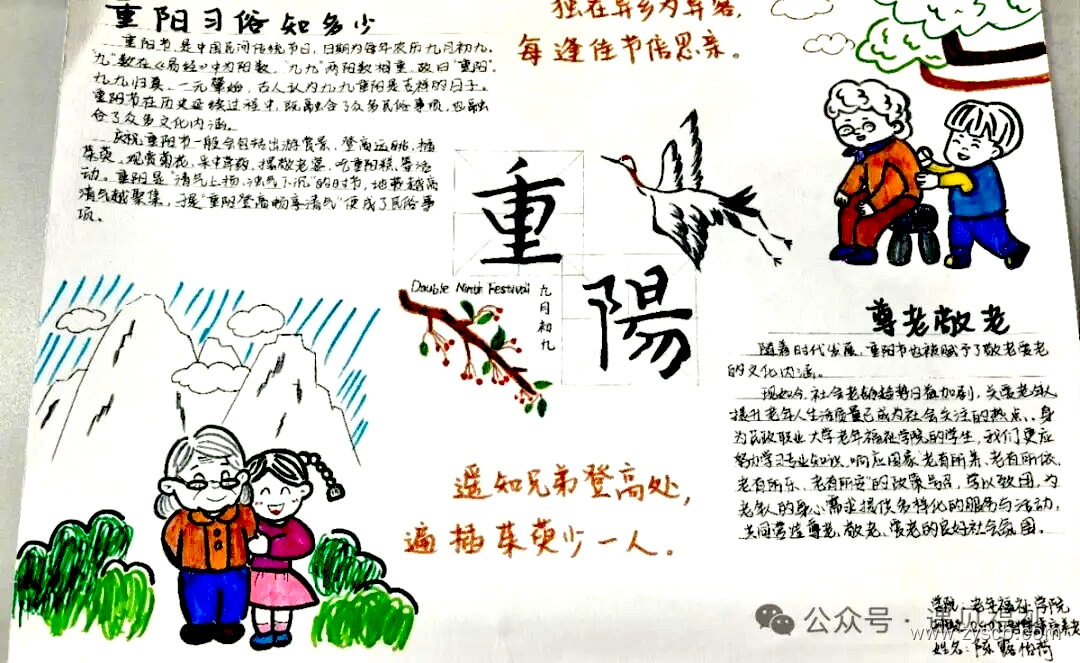 重阳习俗知多少
重阳节,是中国民间传统节日,日期为每年农历九月初九。
"九"数在《易经》中为阳数,"九九"两阳数相重,故曰"重阳"。
九九归真,一元肇始,古人认为九九重阳是吉祥的日子。
重阳节在历史延续过程中,既融合了众多民俗事项,也融
合了众多文化内涵。
庆祝重阳节一般会包括出游赏景、登高远眺、插
茱萸、观赏菊花、采中草药、摆敬老宴、吃重阳糕、等活
动。重阳是"清气上扬,浊气下沉"的时节,地势越高
清气越聚集,于是"重阳登高畅享清气"便成了民俗事
项。
独在异乡为异客,
每逢佳节倍思亲。
重
陽
Double Ninth Festival
九月初九
遥知兄弟登高处,
遍插茱萸少一人。
尊老敬老
随着时代发展,重阳节也被赋予了敬老爱老
的文化内涵。
现如今,社会老龄趋势日益加剧,关爱老年人
提升老年人生活质量已成为社会关注的热点。身
为民政职业大学老年福祉学院的学生,我们更应
努力学习专业知识,响应国家"老有所养、老有所依、
老有所乐、老有所安"的政策号召,
老年人的身心需求提供多样化的服务与活动,
共同营造尊老、敬老、爱老的良好社会氛围。
学院:老年福祉学院
姓名:陈
公众号·遇见
www.zyscb.com